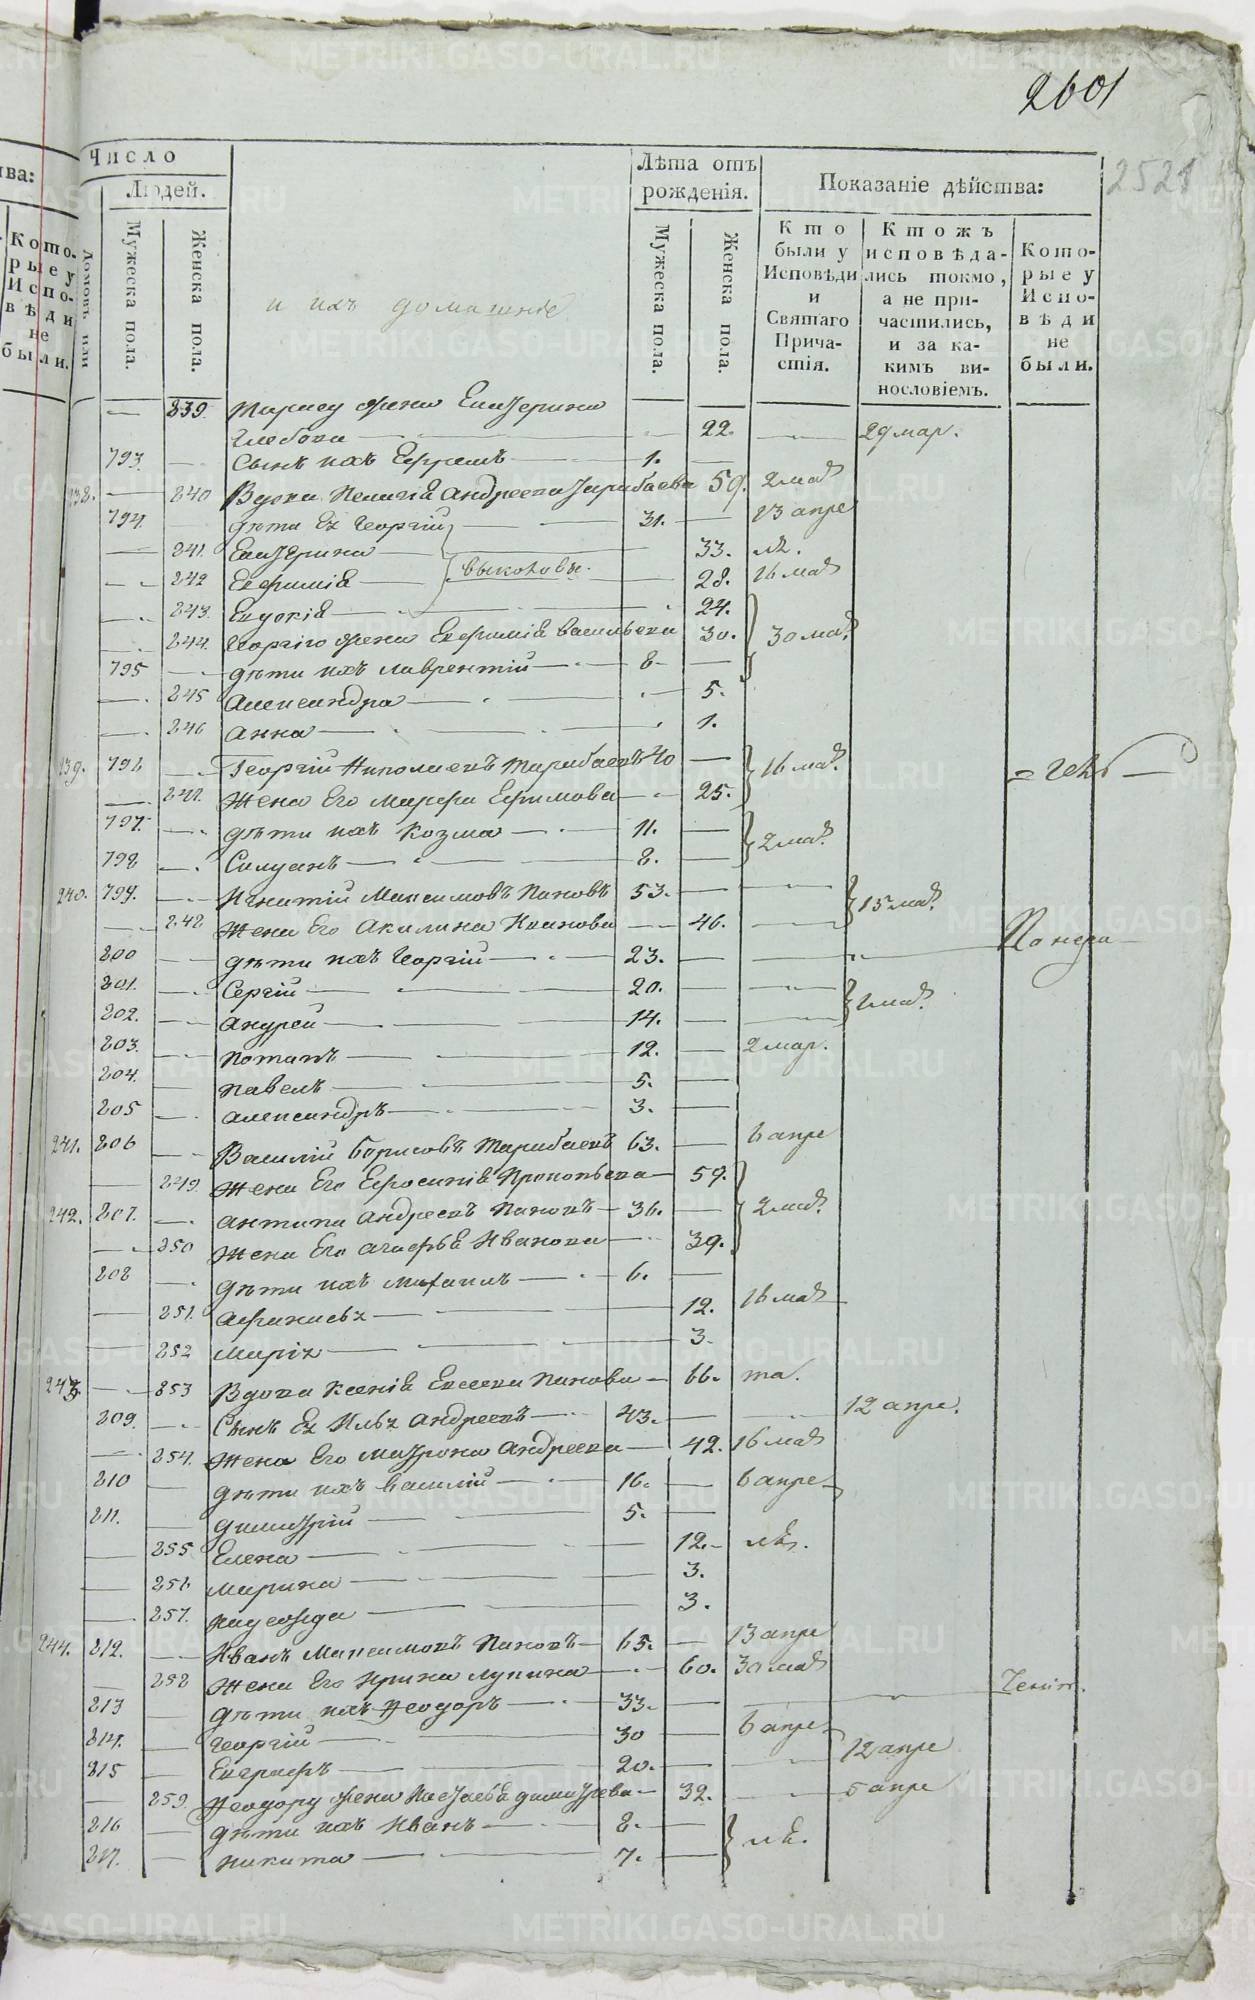 2601
2521
Число
Людей.
Лѣта отъ рожденія.
Показаніе дѣйства:
ва:
Кото-
рые у
Испо-
вѣди
не
были.
Домовъ или
Мужеска пола.
Женска пола.
и ихъ домашніе
Мужеска пола.
Женска пола.
Кто были у Исповѣди и Святаго Причастія.
Ктожъ исповѣда-лись токмо, а не при-частились, и за ка-кимъ ви-нословіемъ.
Кото-рые у Испо-вѣди не были.
839. жена Екатерина
Глебова 22. 29 мар.
793. Сынъ ихъ Ефремъ 1.
238. 840 Вдова Пелагія Андреева 59. 2 маѧ
794. дѣти Еѧ Георгій 31. 23 апре
841. Екатерина 33.
842 Евфимія 28. 16 маѧ
843. Евдокія 24.
844. Георгіѧ жена Евфимія Васильева 30. 30 маѧ
795 дѣти ихъ Лаврентій 8
845 Александра 5.
846 Анна 1.
239. 796 Георгій Николаевъ 40 16 маѧ
847. Жена Его Марфа Ефимова 25.
797. дѣти ихъ Козма 11. 2 маѧ
798 Силуанъ 8.
240. 799. Игнатій Максимовъ Пановъ 53. 15 маѧ
848 Жена Его Акилина Иванова 46.
800 дѣти ихъ Георгій 23.
801. Сергій 20. 2 маѧ
802. Андрей 14.
803. Потапъ 12. 2 мар.
804. Павелъ 5.
805 Александръ 3.
241. 806 Василій Борисовъ 63. 6 апре
849. Жена Его Ефросинія Прокопьева 59.
242. 807. Антипа Андреевъ Пановъ 36. 2 маѧ
850 Жена Его Агафья Иванова 39.
808 дѣти ихъ Михаилъ 6.
851. 12. 16 маѧ
852 Маріѧ 3.
243. 853 Вдова Ксенія Евсеева Панова 66.
809. Сынъ Еѧ Ильѧ Андреевъ 43. 12 апре.
854. Жена Его Матрона Андреева 42. 16 маѧ
810 дѣти ихъ Василій 16. 6 апре
811. Димитрій 5.
855 Елена 12.
856 Марина 3.
857. Надежда 3.
244. 812. Иванъ Максимовъ Пановъ 65. 13 апре
858 Жена Его Ирина Лупина 60. 30 маѧ
813 дѣти ихъ Ѳеодоръ 33.
814. Георгій 30 6 апре
815 Евграфъ 20. 12 апре
859. Ѳеодора жена Настасья Димитрева 32. 5 апре
816 дѣти ихъ Иванъ 8.
817. Никита 7.
METRIKI.GASO-URAL.RU